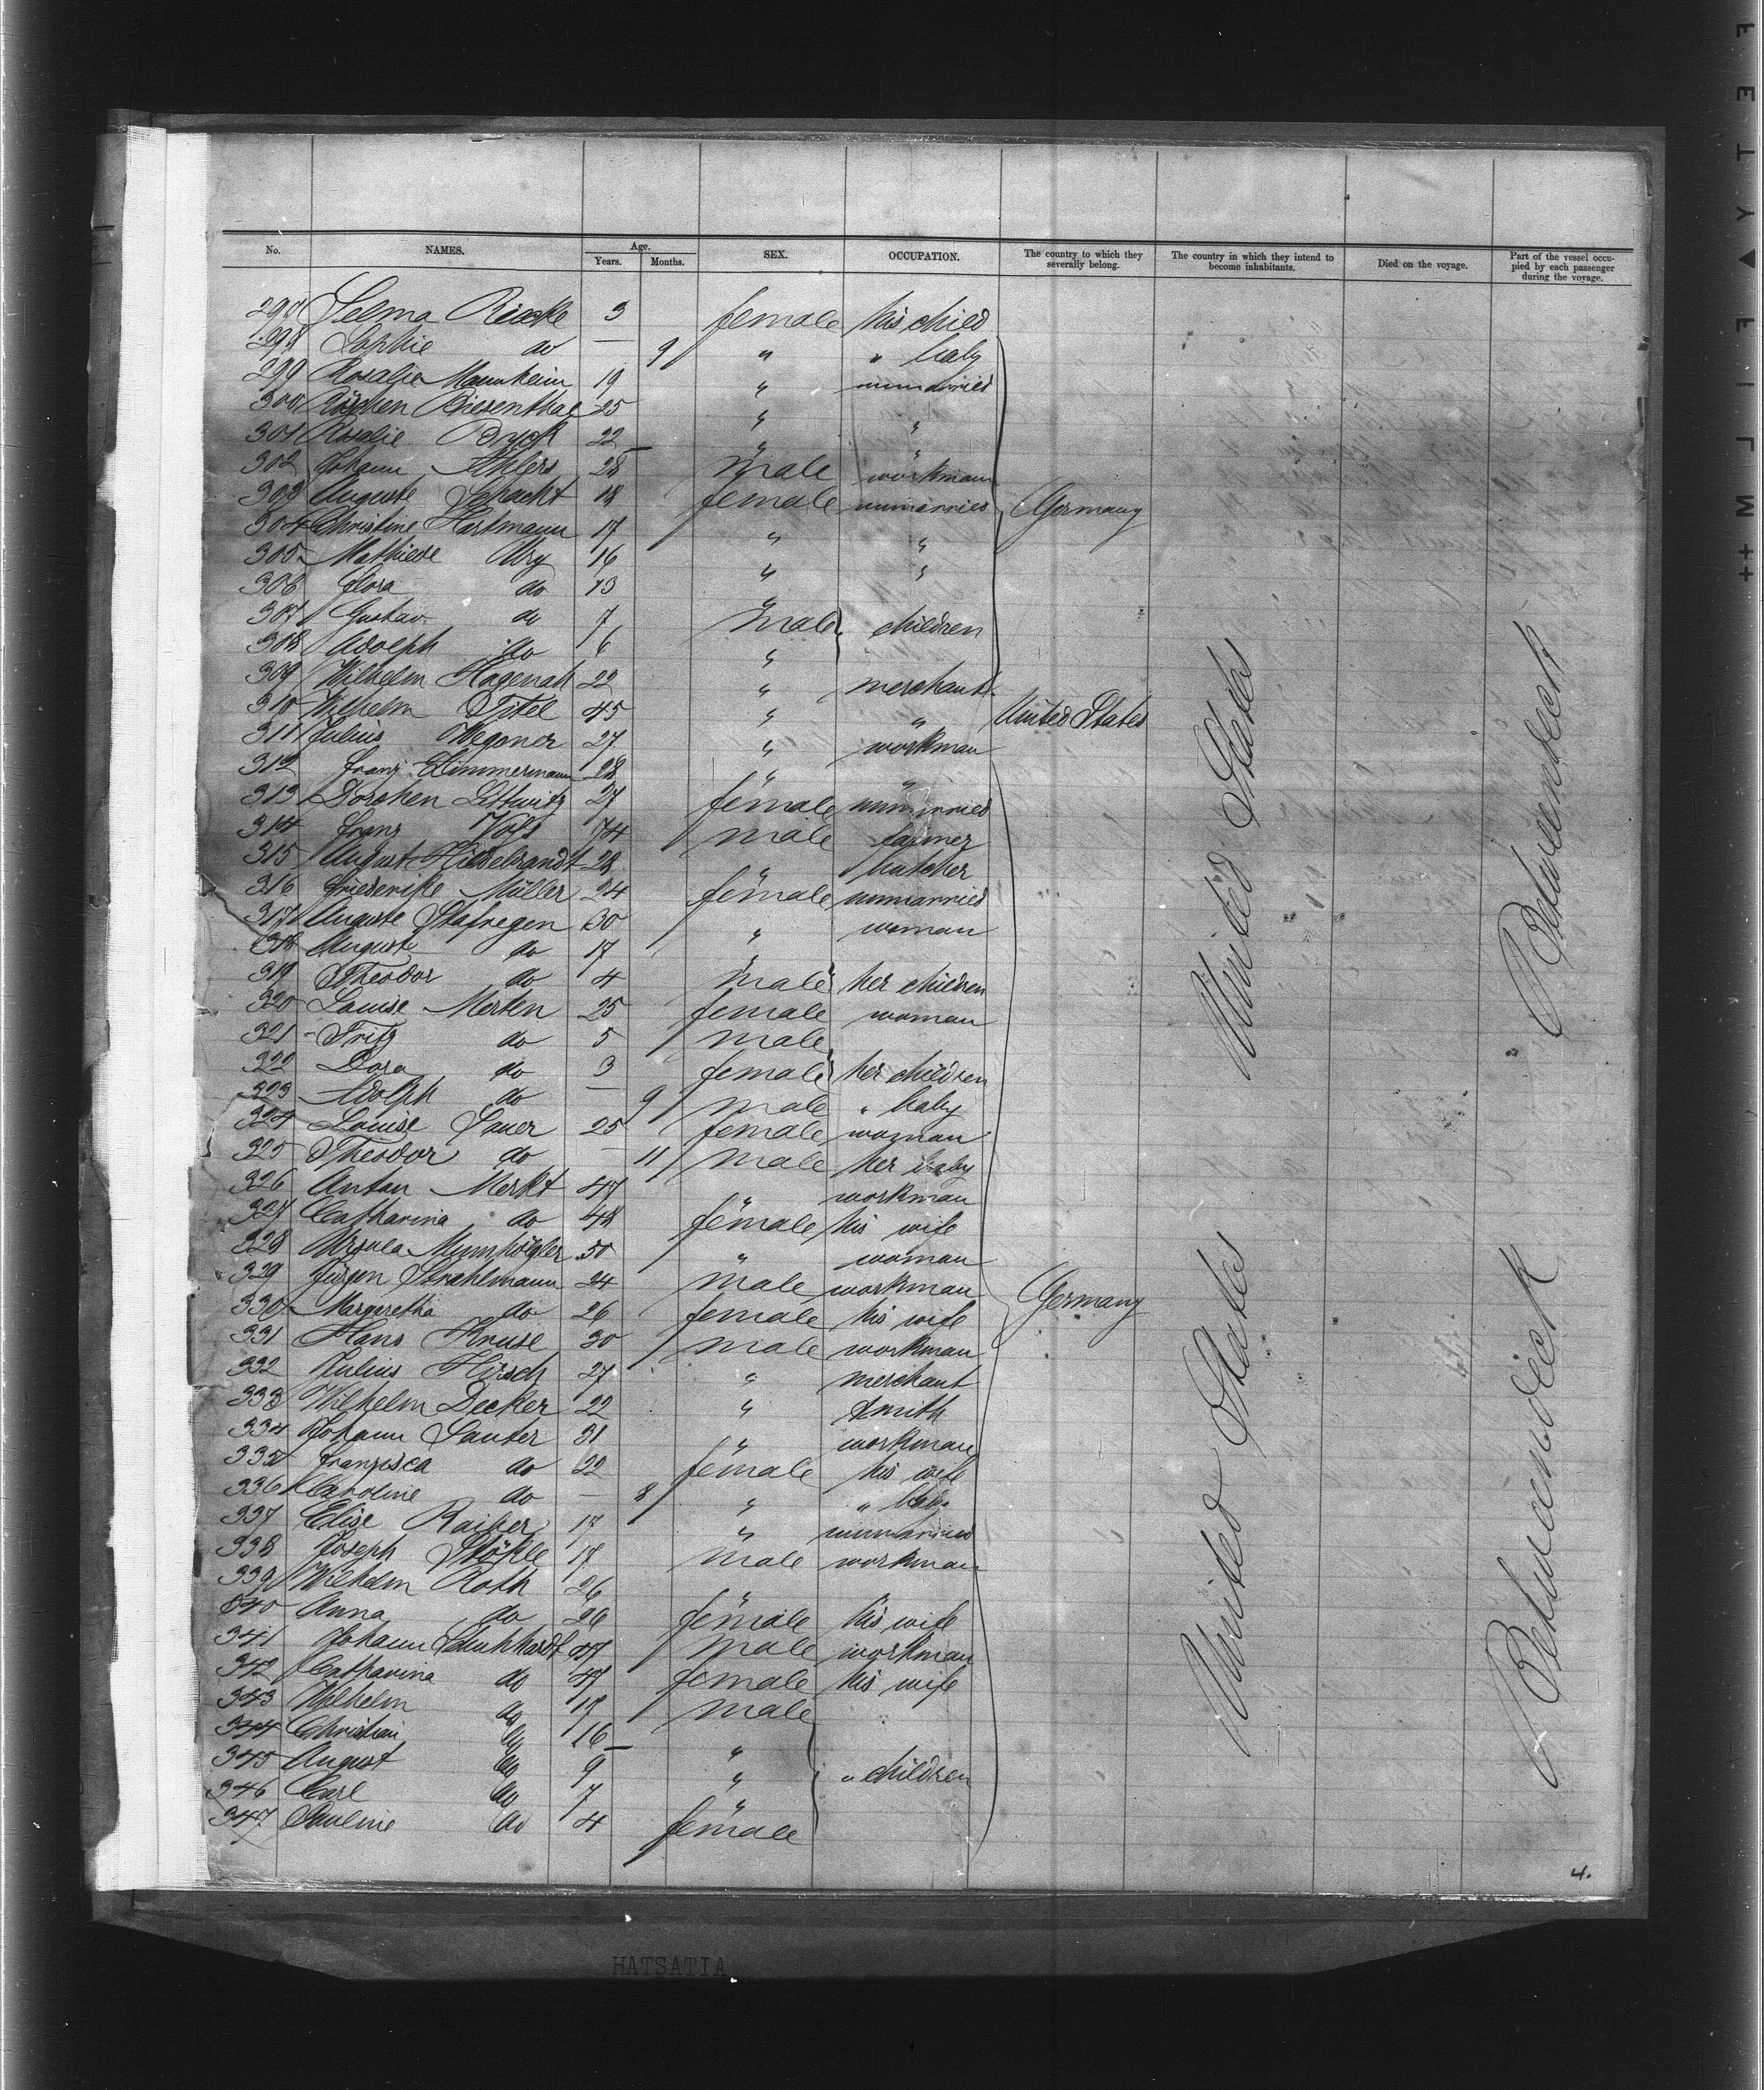 No. NAMES. Age. Years. Months. SEX. OCCUPATION. The country to which they severally belong. The country in which they intend to become inhabitants. Died on the voyage. Part of the vessel occupied by each passenger during the voyage.
297 Selma 3 female his child
298 Sophie do — 9 " " baby
299 Rosalie Mannheim 19 " unmarried
300 Riesenthal 25 " "
301 Rosalie 22 " "
302 Johann Ahlers 28 male workman
303 Auguste Schacht 18 female unmarried Germany
304 Christine Hartmann 17 " "
305 Mathilde Ury 16 " "
306 Flora do 13 "
307 Gustav do 7 male children
308 Adolph do 6 "
309 Wilhelm Hagenah 22 " merchant
310 Wilhelm Titel 45 " " United States
311 Julius Wegener 27 " workman
312 Franz Zimmermann 28 " "
313 Dorchen Littwitz 27 female unmarried
314 Franz 74 male farmer
315 August Hildebrandt 28 " butcher
316 Friederike Müller 24 female unmarried
317 Auguste Stafregen 30 " woman
318 Auguste do 17 "
319 Theodor do 4 male her children
320 Louise Merten 25 female woman
321 Fritz do 5 male
322 Dora do 3 female her children
323 Adolph do — 9 male " baby
324 Louise Sauer 25 female woman
325 Theodor do — 11 male her baby
326 Anton Merkt 47 " workman
327 Catharina do 48 female his wife
328 Ursula 50 " woman
329 Jürgen Strahlmann 24 male workman Germany
330 Margaretha do 26 female his wife
331 Hans Kruse 30 male workman
332 Julius Hirsch 27 " merchant
333 Wilhelm Decker 22 " smith
334 Johann Sauter 31 " workman
335 Franzisca do 22 female his wife
336 Caroline do — 8 " " baby
337 Elise Raiber 17 " unmarried
338 Joseph Stökle 17 male workman
339 Wilhelm Roth 26 "
340 Anna do 26 female his wife
341 Johann 47 male workman
342 Catharina do 47 female his wife
343 Wilhelm do 17 male
344 Christian do 16 "
345 August do 9 " " children
346 Carl do 7 "
347 Pauline do 4 female
United States
United States
Betweendeck
Betweendeck
4.
HATSATIA